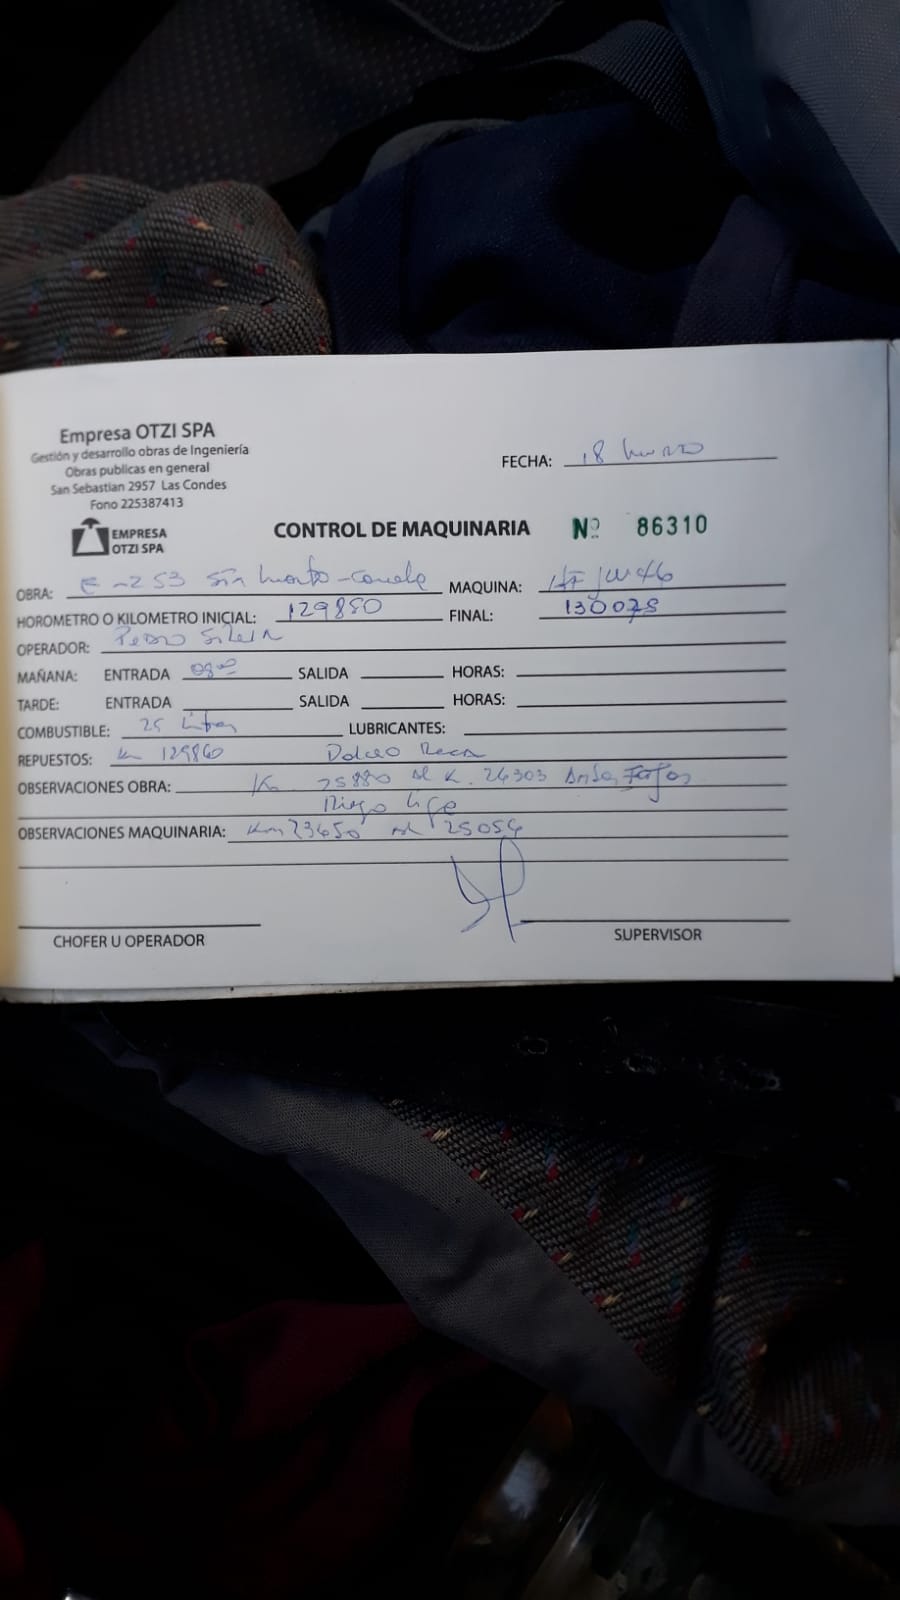 Empresa OTZI SPA
Gestión y desarrollo obras de Ingeniería
Obras publicas en general
San Sebastian 2957 Las Condes
Fono 225387413
EMPRESA
OTZI SPA
FECHA: 18
CONTROL DE MAQUINARIA Nº 86310
OBRA: E-253 Sin MAQUINA:
HOROMETRO O KILOMETRO INICIAL: 129850 FINAL:
OPERADOR: Pedro
MAÑANA: ENTRADA SALIDA HORAS:
TARDE: ENTRADA SALIDA HORAS:
COMBUSTIBLE: 25 Litros LUBRICANTES:
REPUESTOS: Km 129860
OBSERVACIONES OBRA: Km 25880 al K. 26303
Riego
OBSERVACIONES MAQUINARIA: Km 23650 al 25054
CHOFER U OPERADOR
SUPERVISOR